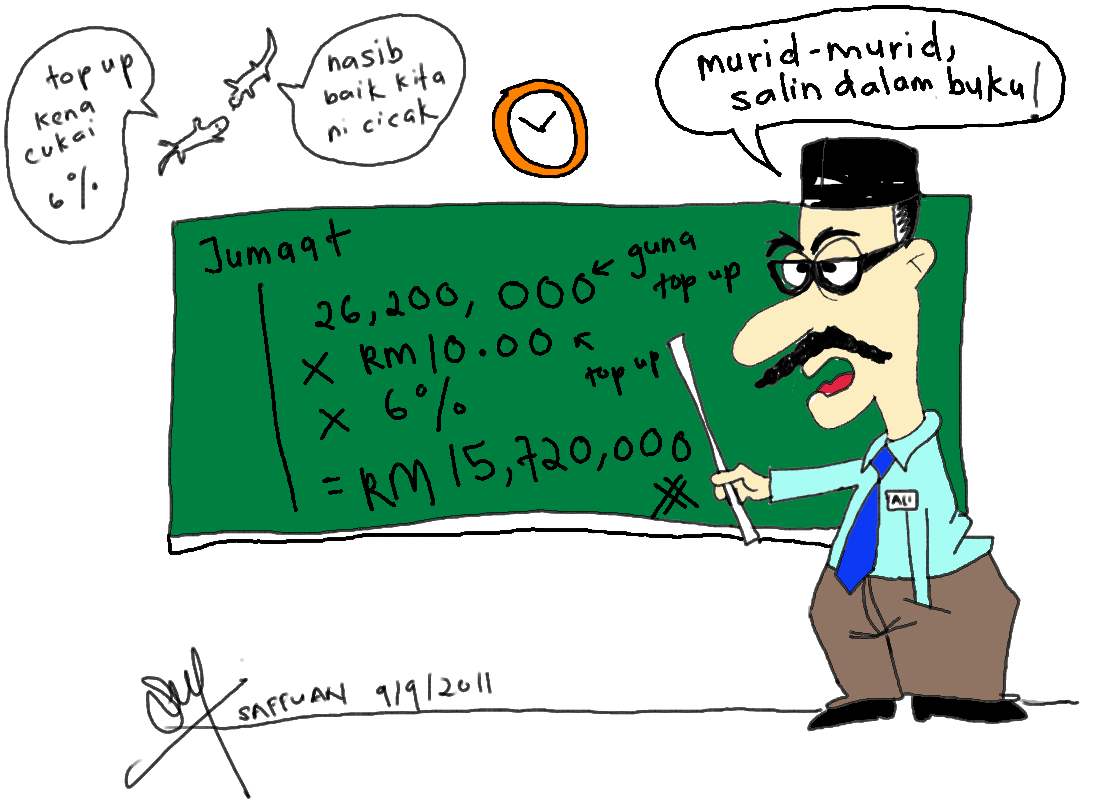 top up
kena
cukai
6%
nasib
baik kita
ni cicak
murid-murid,
salin dalam buku!
Jumaat
26,200,000 ← guna
top up
X RM10.00 ←
top up
X 6%
= RM 15,720,000
ALI
SAFFUAN 9/9/2011